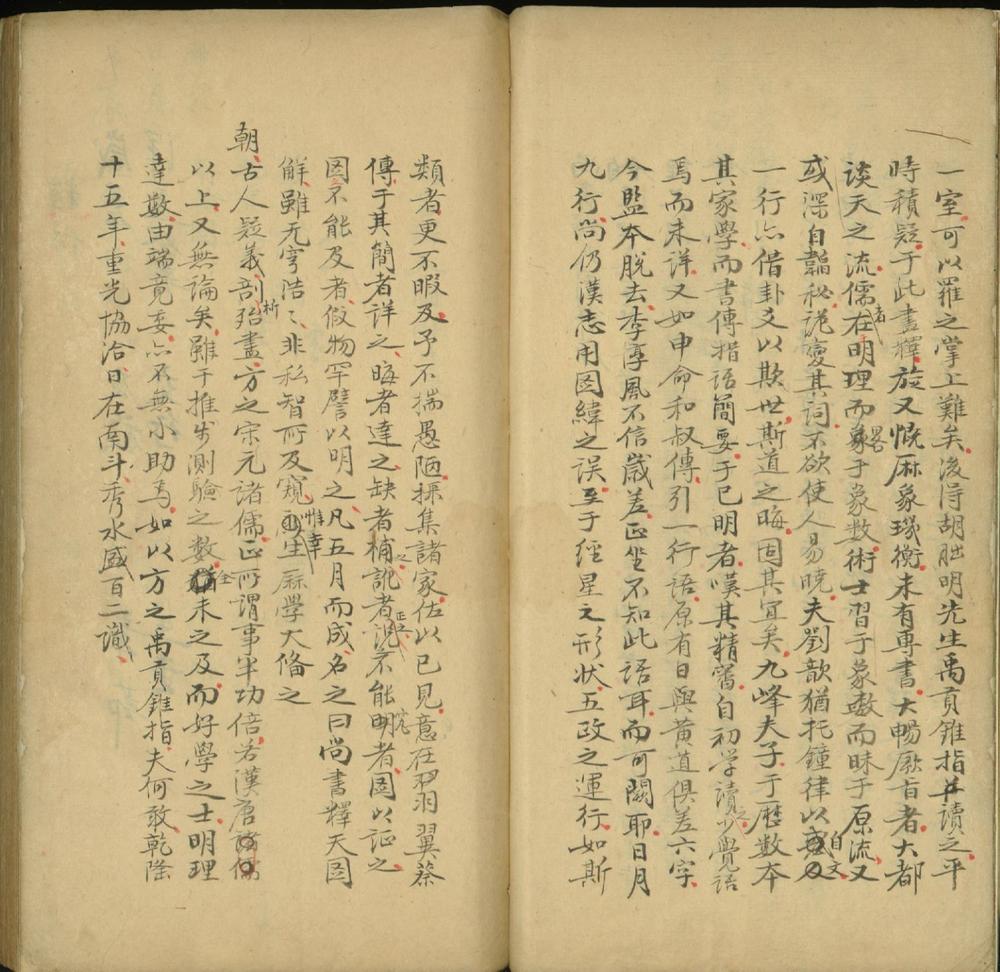 一室可以羅之掌上難矣後得胡朏明先生禹貢錐指讀之平
時積疑于此盡釋於又慨厤象璣衡未有專書大暢厥旨者大都
談天之流儒者在明理而畧于象數術士習于象數而昧于原流又
或深自韜秘詭變其詞不欲使人易曉夫劉歆猶托鐘律以自文
一行亦借卦爻以欺世斯道之晦固其宜矣九峰夫子于厯數本
其家學而書傳指語簡要于已明者嘆其精當自初學讀之少覺語
焉而未詳又如申命和叔傳引一行語原有日與黃道俱差六字
今監本脫去李淳風不信歲差正坐不知此語耳而可闕耶日月
九行尚仍漢志用圖緯之误至于經星之形狀五政之運行如斯
類者更不暇及予不揣愚陋採集諸家佐以已見意在羽翼蔡
傳于其簡者詳之晦者達之缺者補之訛者正之不能明者圖以証之
圖不能及者假物罕譬以明之凡五月而成名之曰尚書釋天図
觧雖无穹浩〻非私智所及窺惟幸生厤學大俻之
朝古人疑義剖析殆盡方之宋元諸儒正所謂事半功倍若漢唐諸儒
以上又無論矣雖于推步測驗之數全未之及而好學之士明理
達數由端竟委亦不無小助焉如以方之禹貢錐指夫何敢乾隆
十五年重光協洽日在南斗秀水盛百二識